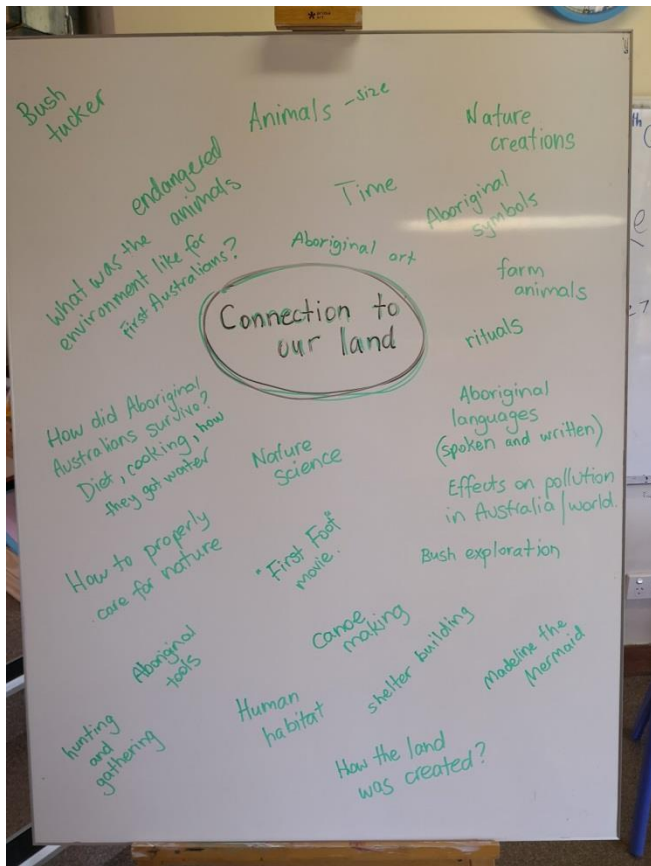 Bush
tucker
Animals -size
Nature
creations
endangered
animals
Time
Aboriginal
symbols
What was the
environment like for
First Australians?
Aboriginal art
farm
animals
Connection to
our land
rituals
How did Aboriginal
Australians survive?
Diet, cooking, how
they got water
Nature
science
Aboriginal
languages
(spoken and written)
Effects on pollution
in Australia/world.
How to properly
care for nature
"First Foot"
movie.
Bush exploration
Canoe
making
Aboriginal
tools
shelter building
Madeline the
Mermaid
Human
habitat
hunting
and
gathering
How the land
was created?